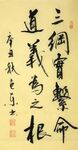 三綱實繫命
道義為之根